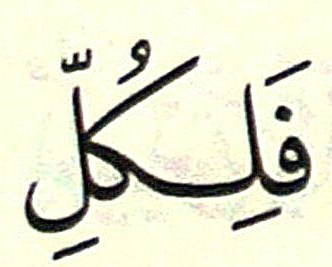 فَلِكُلِّ